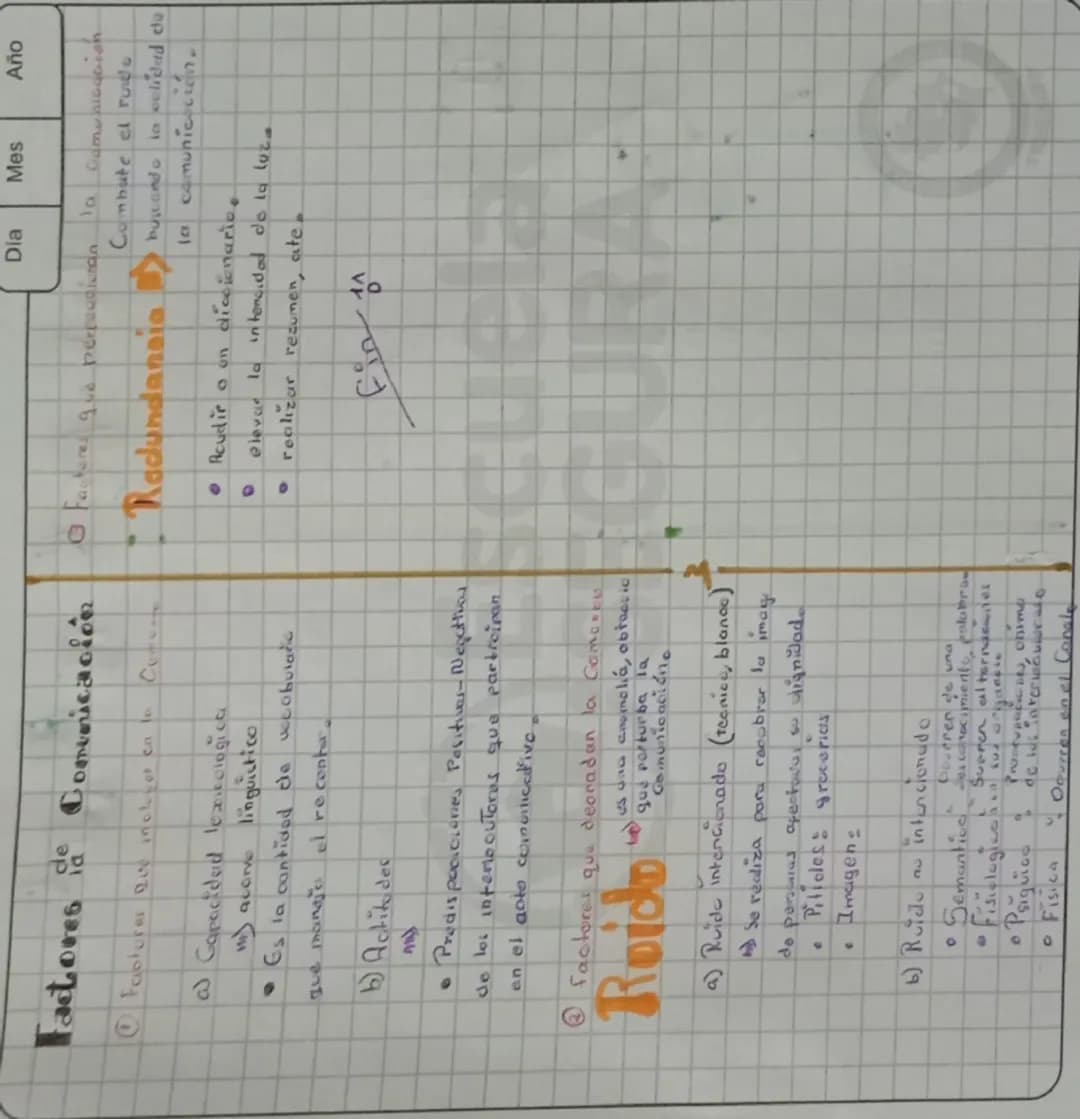 Día Mes Año
Factores de
la Comunicación
① Factores que influyen en la
a) Capacidad lexicologica
acervo lingüístico
• Es la cantidad de vocabulario
que maneja el
b) Actitudes
• Predisposiciones Positivas-Negativas
de los interlocutores que
en el acto comunicativo.
② Factores que degradan la
Ruido es una anomalía, obstaculo
que perturba la
comunicación.
a) Ruido intencionado (tecnico, blanco)
Se realiza para la
de personas su dignidad.
• grocerias
• Imagen:
b) Ruido no intencionado
• Semantico: de una
desconocimiento, palabras
• Fisiologico
• Psiquico : Preocupaciones, animo
de los interlocutores
• Física : Ocurren en el Canal.
Factores que la comunicación
: Redundancia Combate el ruido
buscando la calidad de
la comunicación.
• Acudir a un diccionario.
• elevar la intencidad de la luz.
• realizar rezumen, ete.
fin
escuela
SEGURA